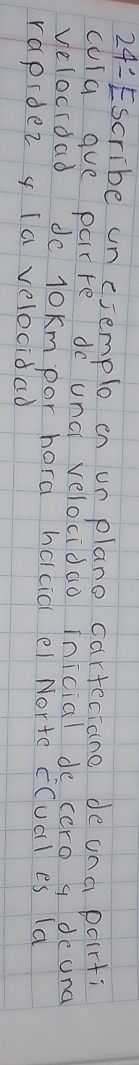 24:- Escribe un ejemplo en un plano carteciano de una parti
cula que parte de una velocidad inicial de cero y de una
velocidad de 10 Km por hora hacia el Norte ¿Cual es la
rapidez y la velocidad